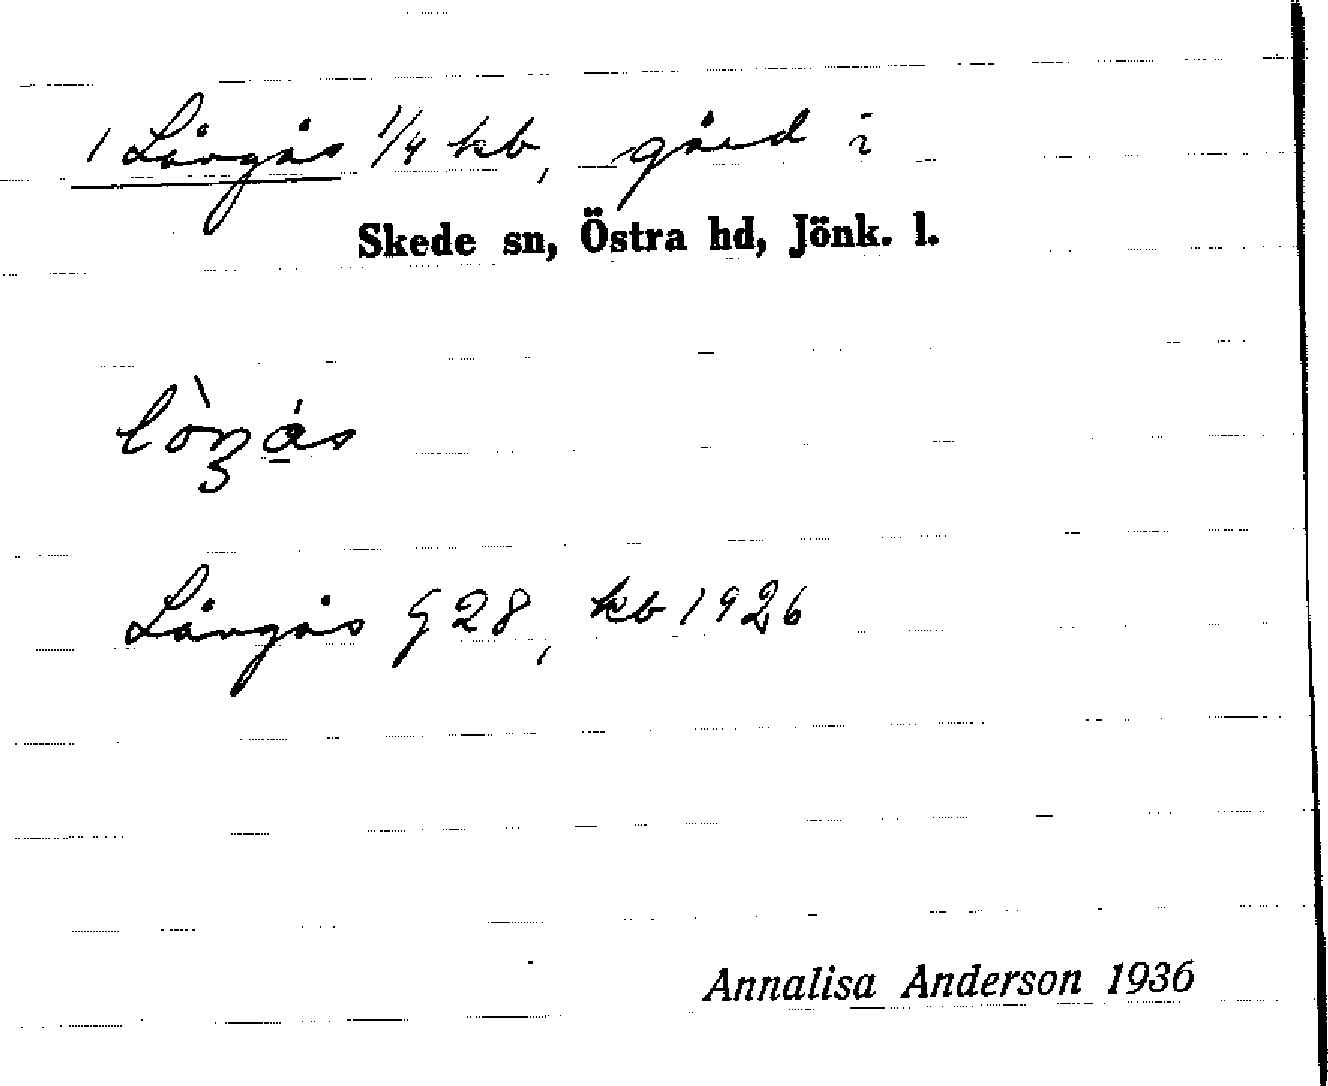 1 Långås 1/4 kb, gård i
Skede sn, Östra hd, Jönk. l.
Långås G 28, kb 1926
Annalisa Anderson 1936